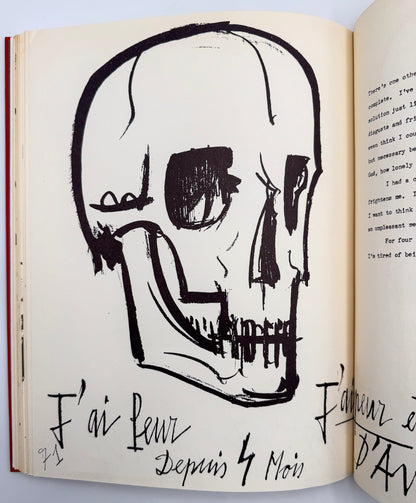 J'ai Peur
Depuis 4 Mois
71
J'ai peur
D'Av
There's one othe
complete. I've
solution just li
disgusts and fri
even think I cou
but necessary be
God, how lonely
I had a c
frightens me. I
I want to think
an unpleasant me
For four
I'm tired of bei